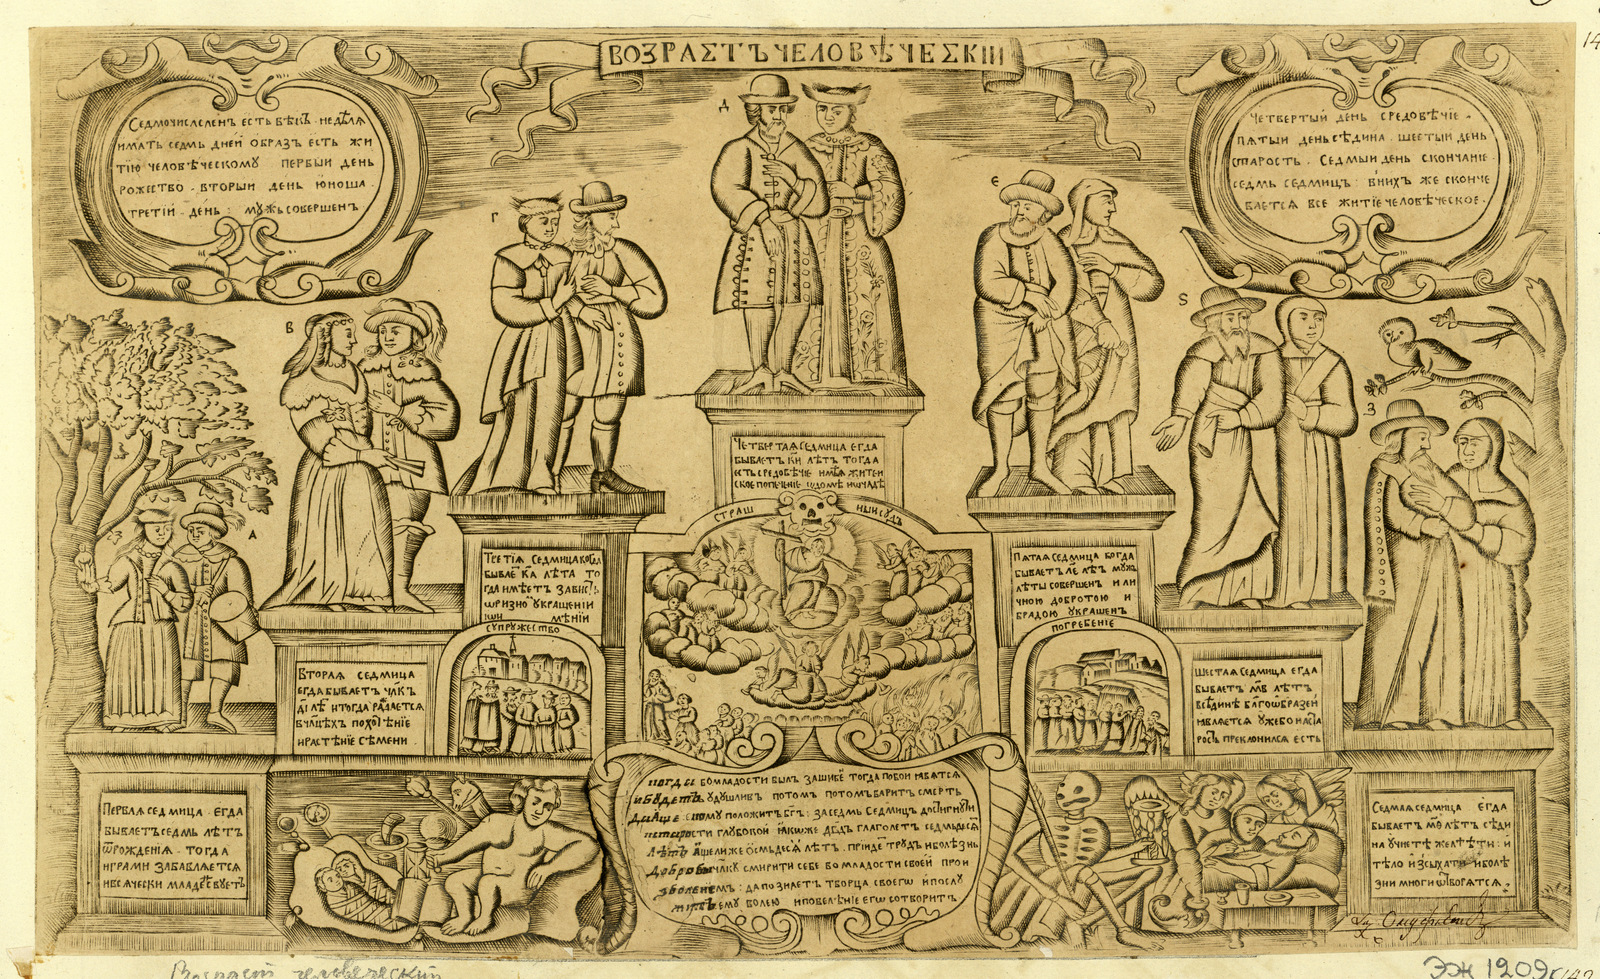 ВОЗРАСТЪ ЧЕЛОВѢЧЕСКІИ
СЕДМОЧИСЛЕНЪ ЕСТЬ ВѢКЪ НЕДѢЛЯ
ИМАТЬ СЕДМЬ ДНЕЙ ОБРАЗЪ ЕСТЬ ЖИ
ТІЮ ЧЕЛОВѢЧЕСКОМУ ПЕРВЫИ ДЕНЬ
РОЖЕСТВО · ВТОРЫИ ДЕНЬ ЮНОША ·
ТРЕТІЙ · ДЕНЬ : МУЖЬ СОВЕРШЕНЪ
ЧЕТВЕРТЫЙ ДЕНЬ СРЕДОВѢЧІЕ ·
ПЯТЫИ ДЕНЬ СѢДИНА · ШЕСТЫИ ДЕНЬ
СТАРОСТЬ · СЕДМЫИ ДЕНЬ СКОНЧАНІЕ
СЕДМЬ СЕДМИЦЪ : ВНИХЪ ЖЕ СКОНЧЕ
ВАЕТСЯ ВСЕ ЖИТІЕ ЧЕЛОВѢЧЕСКОЕ ·
А
В
Г
Д
Є
Ѕ
З
ЧЕТВЕРТАЯ СЕДМИЦА ЕГДА
БЫВАЕТЪ КИ ЛѢТЪ ТОГДА
ЕСТЬ СРЕДОВѢЧІЕ ИМѢЯ ЖИТЕИ
СКОЕ ПОПЕЧЕНІЕ ѠДОМѢ ИѠЧАДѢ
СТРАШНЫИ СУДЪ
ТРЕТІЯ СЕДМИЦА
БЫВАЕ КА ЛѢТА ТО
ГДА ИМѢЕТЪ ЗАВИС
ѠРИЗНО УКРАШЕНІИ
ИѠИ МѢНІИ
ПѦТАЯ СЕДМИЦА КОГДА
БЫВАЕТЪ ЛЕ ЛѢ МУЖЪ
ЛѢТЫ СОВЕРШЕНЪ И ЛИ
ЧНОЮ ДОБРОТОЮ И
БРАДОЮ УКРАШЕНЪ
СУПРУЖЕСТВО
ПОГРЕБЕНІЕ
ВТОРАЯ СЕДМИЦА
ЕГДА БЫВАЕТЪ ЧЛКЪ
ДІ ЛѢ И ТОГДА РАЖДАЕТСЯ
ВЧЛЦѢХЪ ПОХОТѢНІЕ
И РАСТѢНІЕ СѢМЕНИ
ШЕСТАЯ СЕДМИЦА ЕГДА
БЫВАЕТЪ МВ ЛѢТЪ
ВСѢДИНѢ БЛГОѠБРАЗЕИ
ЯВЛЯЕТСЯ УЖЕ БО НАСТА
РОСТЬ ПРЕКЛОНИЛСЯ ЕСТЬ
ПЕРВАЯ СЕДМИЦА · ЕГДА
БЫВАЕТЪ СЕДМЬ ЛѢТЪ
ѾРОЖДЕНІЯ · ТОГДА
ИГРАМИ ЗАБАВЛЯЕТСЯ
ИВСЯЧЕСКИ МЛАДЕСТВУЕТЪ
БОМЛАДОСТИ БЫЛЪ ЗАШИБЕ ТОГДА ПОБОИ ЯВЯТСЯ
ИБУДЕТЪ УДУШЛИВЪ ПОТОМ ПОТОМЪ ВАРИТЪ СМЕРТЬ
ДААЩЕ КОМУ ПОЛОЖИТЪ БГЪ : ЗАСЕДМЬ СЕДМИЦЪ ДОСТИГНУТИ
СТАРОСТИ ГЛУБОКОЙ ЯКОЖЕ ДВДЪ ГЛАГОЛЕТЪ СЕДМЬДЕСЯ
ЛѢТЪ АЩЕЛИЖЕ ОСМЬДЕСЯ ЛѢТЪ · ПРІИДЕ ТРУДЪ ИБОЛЕЗНЬ
ДОБРО БЫ ЧЛКУ СМИРИТИ СЕБЕ ВОМЛАДОСТИ СВОЕЙ ПРОИ
ЗВОЛЕНІЕМЪ : ДА ПОЗНАЕТЪ ТВОРЦА СВОЕГѠ ИПОСЛУ
ЖИТЪ ЕМУ ВОЛЕЮ ИПОВЕЛѢНІЕ ЕГѠ СОТВОРИТЪ
СЕДМАЯ СЕДМИЦА ЕГДА
БЫВАЕТЪ МѲ ЛѢТЪ СѢДИ
НА УЧНЕТЪ ЖЕЛТѢТИ : И
ТѢЛО ИЗСЫХАТИ ИБОЛѢ
ЗНИ МНОГИ ѾВОРЯТСЯ
Возраст человеческий
ЭЖ 1209